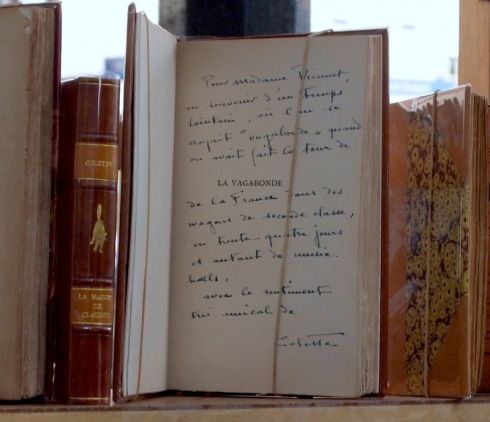 Pour Madame
en souvenir d'un temps
lointain, où l'on se
croyait "vagabonde" quand
on avait fait le tour de
LA VAGABONDE
de la France dans des
wagons de seconde classe,
en trente-quatre jours
et autant de music-
halls,
avec le sentiment
très amical de
Colette
COLETTE
LA MAISON
DE
CLAUDINE